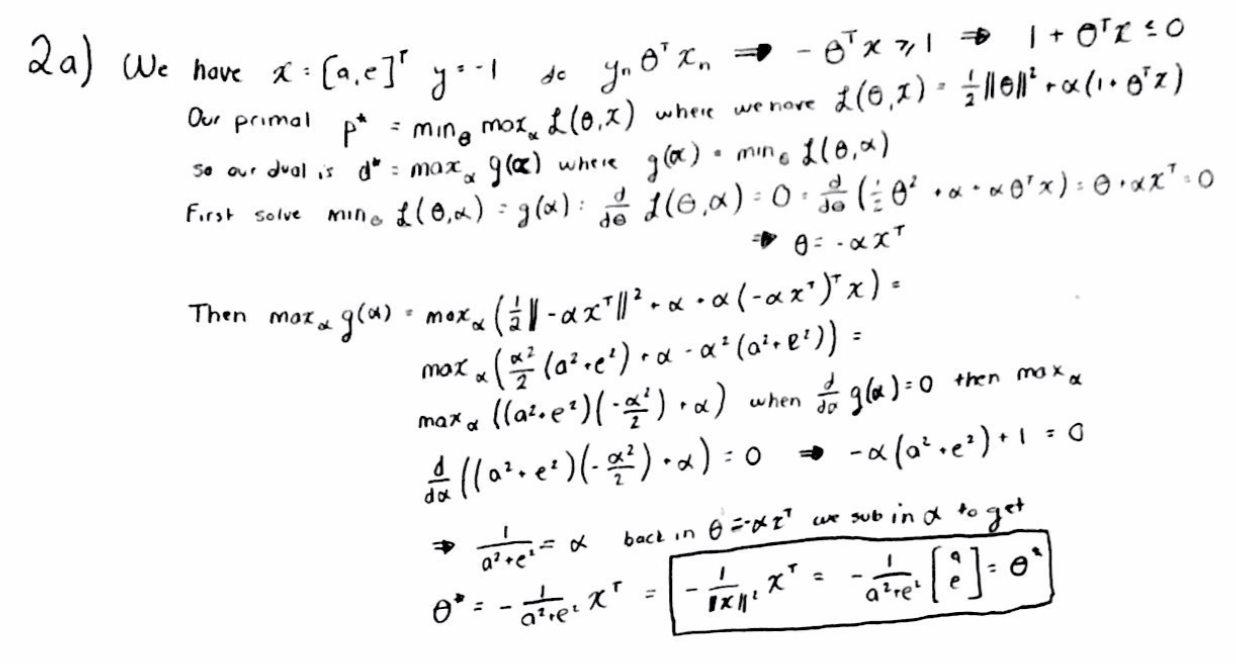 2a) We have x = [a,e]ᵀ y = -1 so yₙ θᵀ xₙ ⇒ - θᵀ x ≥ 1 ⇒ 1 + θᵀx ≤ 0
Our primal p* = min_θ max_α L(θ,x) where we have L(θ,x) = ½||θ||² + α(1 + θᵀx)
so our dual is d* = max_α g(α) where g(α) = min_θ L(θ,α)
First solve min_θ L(θ,α) = g(α) : d/dθ L(θ,α) = 0 = d/dθ (½ θ² + α + αθᵀx) = θ + αxᵀ = 0
⇒ θ = -αxᵀ
Then max_α g(α) = max_α (½||-αxᵀ||² + α + α(-αxᵀ)ᵀx) =
max_α (α²/2 (a²+e²) + α - α²(a²+e²)) =
max_α ((a²+e²)(-α²/2) + α) when d/dα g(α) = 0 then max_α
d/dα ((a²+e²)(-α²/2) + α) = 0 ⇒ -α(a²+e²) + 1 = 0
⇒ 1/(a²+e²) = α back in θ = -αxᵀ we sub in α to get
θ* = - 1/(a²+e²) xᵀ = - 1/||x||² xᵀ = - 1/(a²+e²) [a e] = θ*